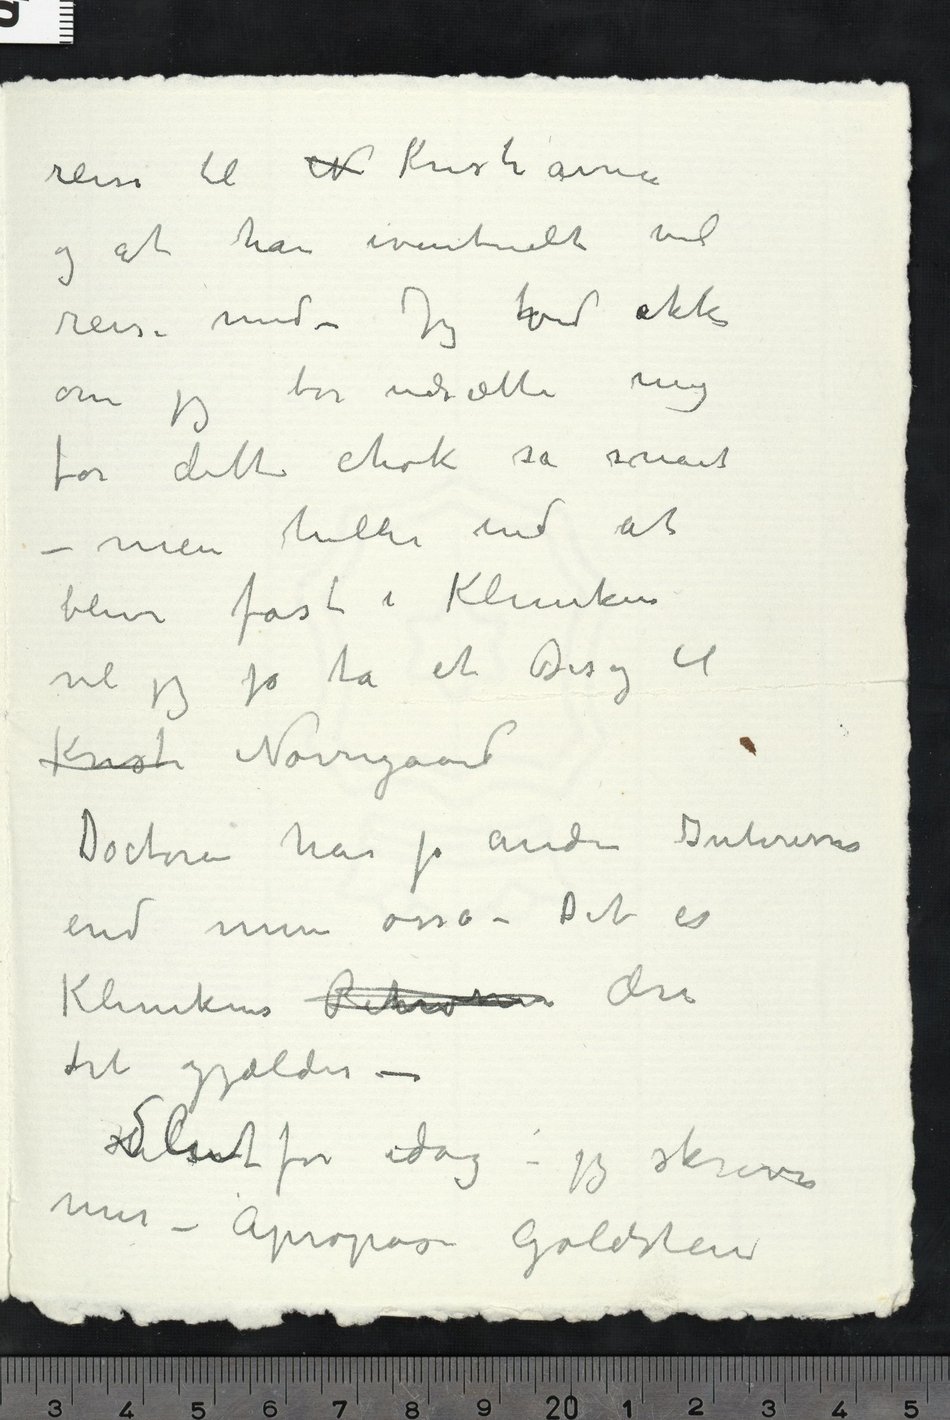 reise til N Kristiania
og at han eventuelt vil
reise med – Jeg ved ikke
om jeg tør udsætte mig
for dette chok så snart
– men heller end at
blive fast i Kliniken
vil jeg jo ta et Besøg til
Kristi Norregaard
Doctoren har jo andre Interesser
end mine også – Det er
Klinikens Ære
det gjælder –
Slut for idag – jeg skriver
mer – Apropos Goldstein